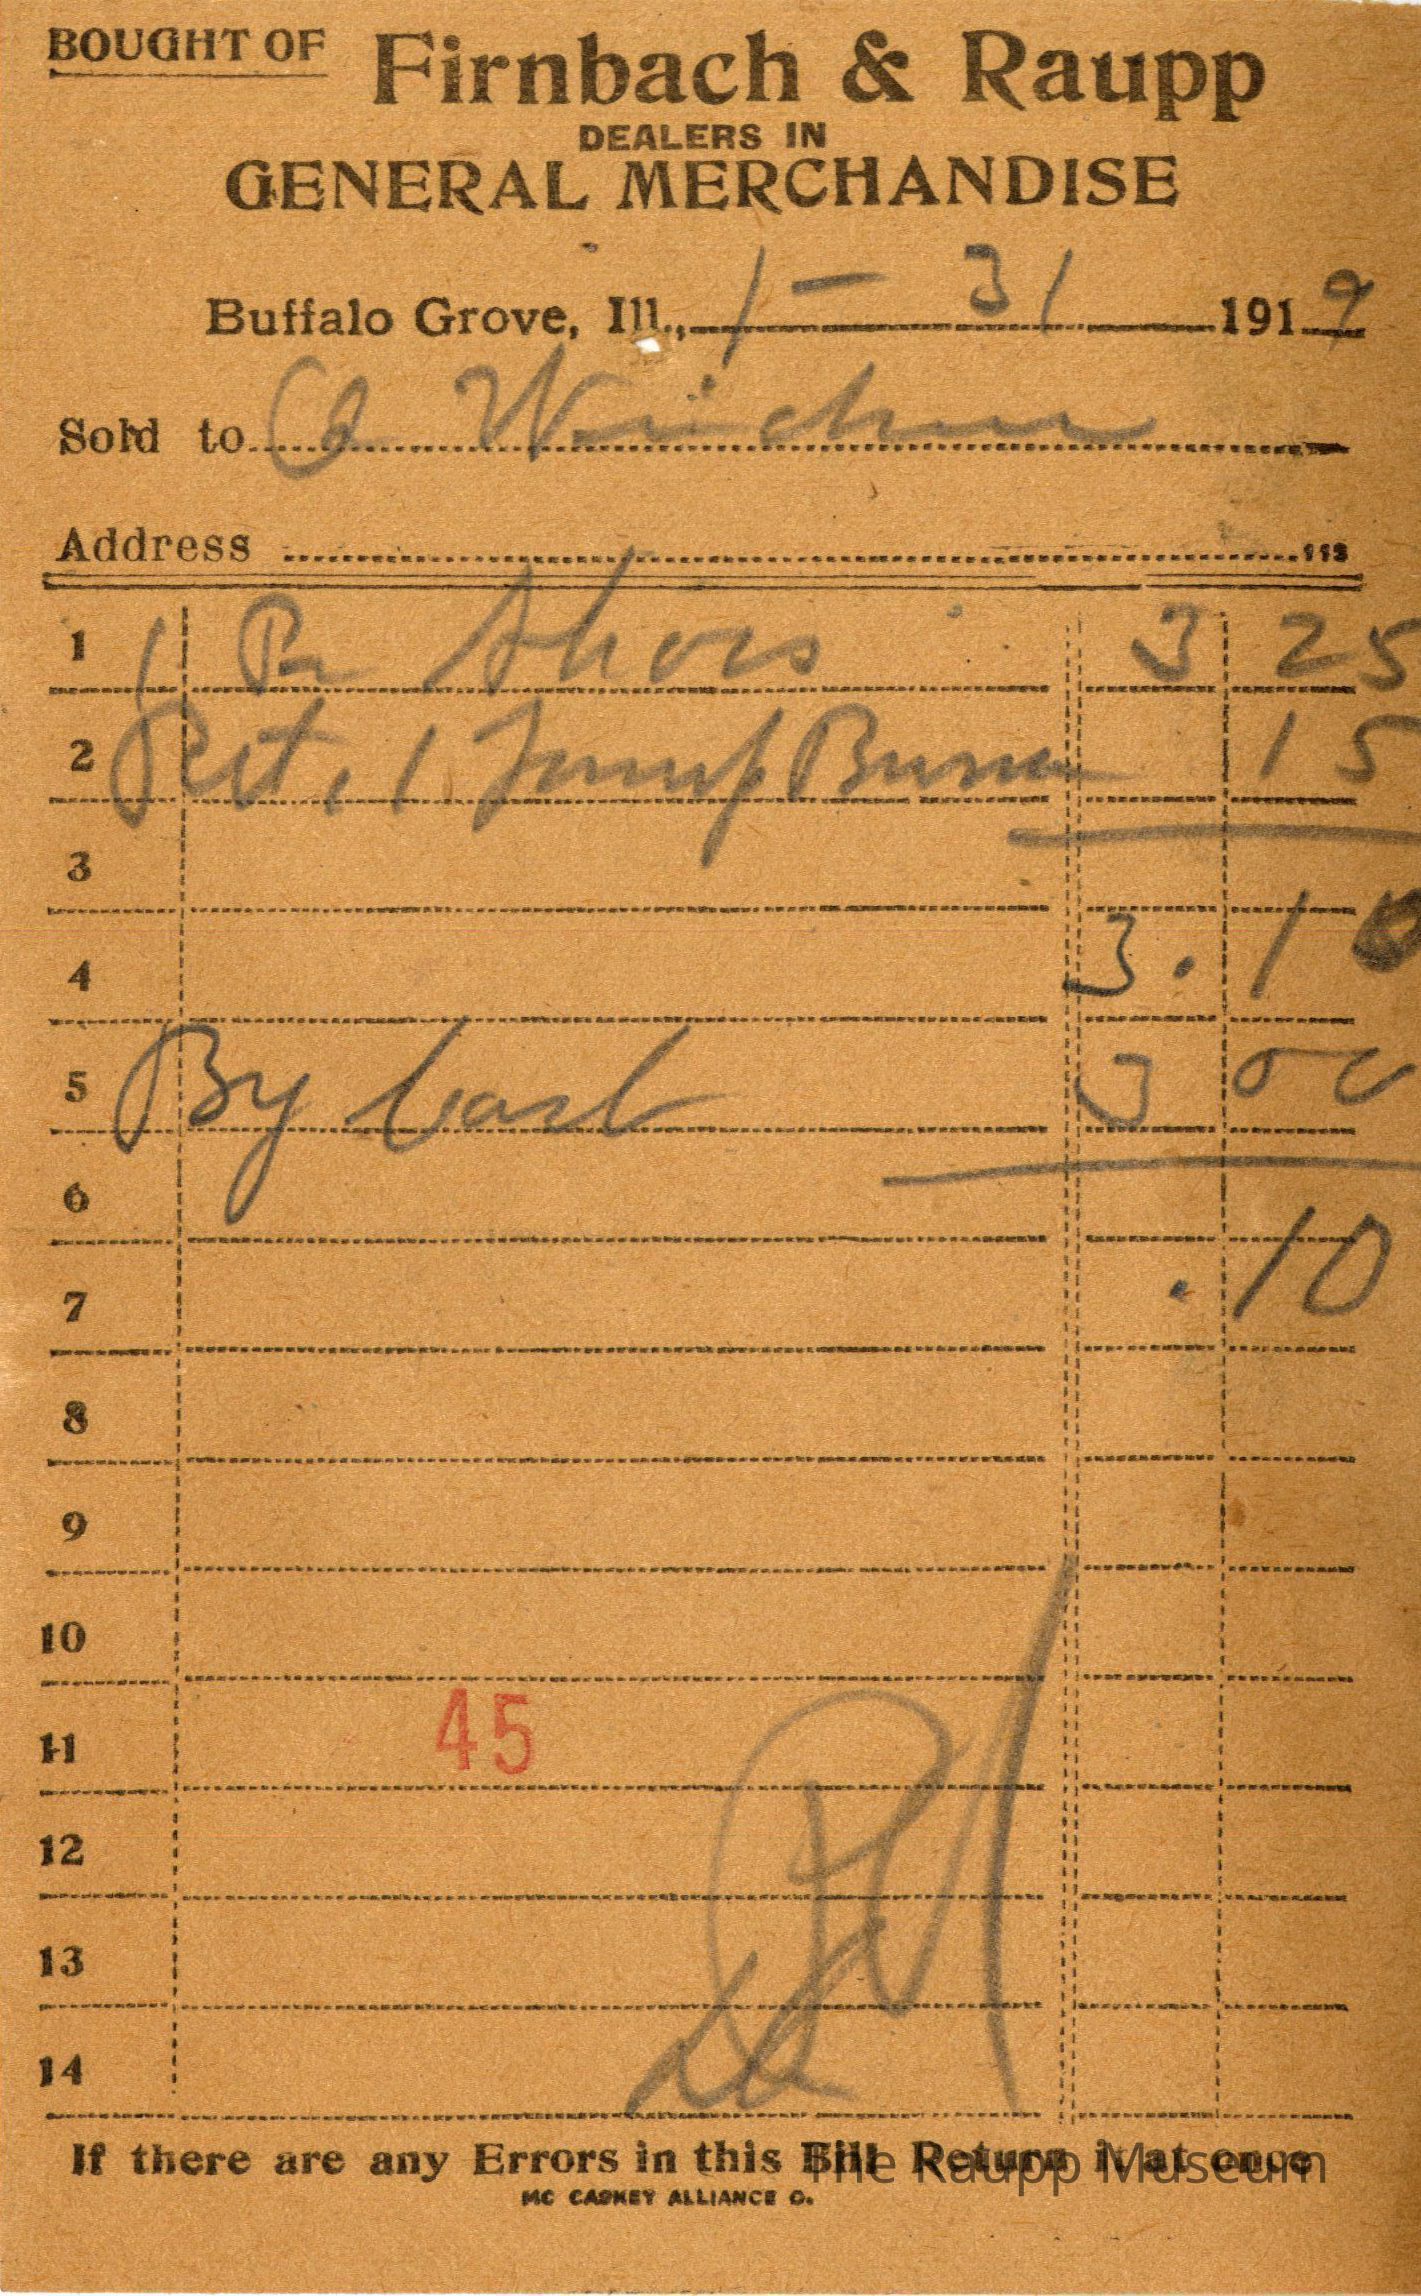 BOUGHT OF Firnbach & Raupp
DEALERS IN
GENERAL MERCHANDISE
Buffalo Grove, Ill., 1 - 31 1919
Sold to
Address
1 1 Pr Shoes 3 25
2 Ret. 1 Lamp Burner 15
3
4 3.10
5 By Cash 3 00
6
7 .10
8
9
10
11 45
12
13
14
If there are any Errors in this Bill Return it at once
MC CASKEY ALLIANCE O.
The Raupp Museum